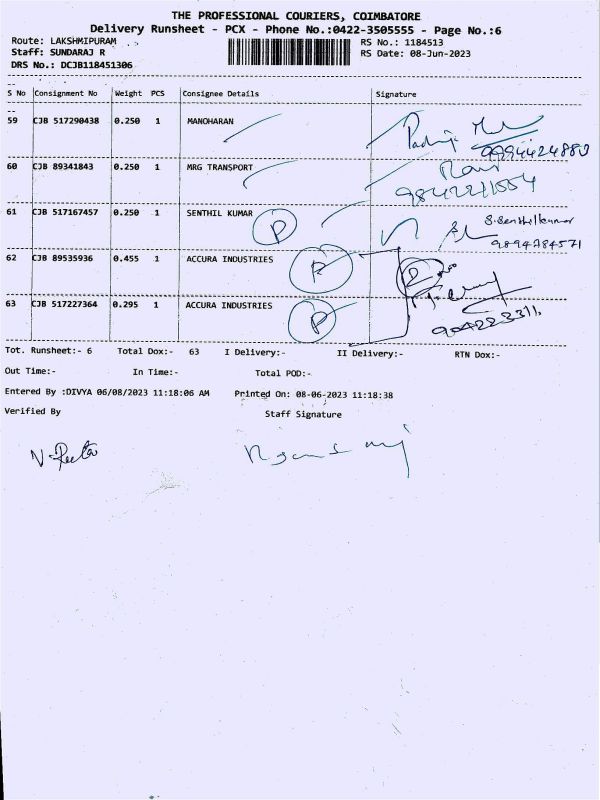 THE PROFESSIONAL COURIERS, COIMBATORE
Delivery Runsheet - PCX - Phone No.:0422-3505555 - Page No.:6
Route: LAKSHMIPURAM
RS No.: 1184513
Staff: SUNDARAJ R
RS Date: 08-Jun-2023
DRS No.: DCJB118451306
S No Consignment No Weight PCS Consignee Details Signature
59 CJB 517290438 0.250 1 MANOHARAN
9994424880
60 CJB 89341843 0.250 1 MRG TRANSPORT
9842211554
61 CJB 517167457 0.250 1 SENTHIL KUMAR P S.Senthilkumar
9894784571
62 CJB 89535936 0.455 1 ACCURA INDUSTRIES P
63 CJB 517227364 0.295 1 ACCURA INDUSTRIES P
Tot. Runsheet:- 6 Total Dox:- 63 I Delivery:- II Delivery:- RTN Dox:-
Out Time:- In Time:- Total POD:-
Entered By :DIVYA 06/08/2023 11:18:06 AM Printed On: 08-06-2023 11:18:38
Verified By Staff Signature